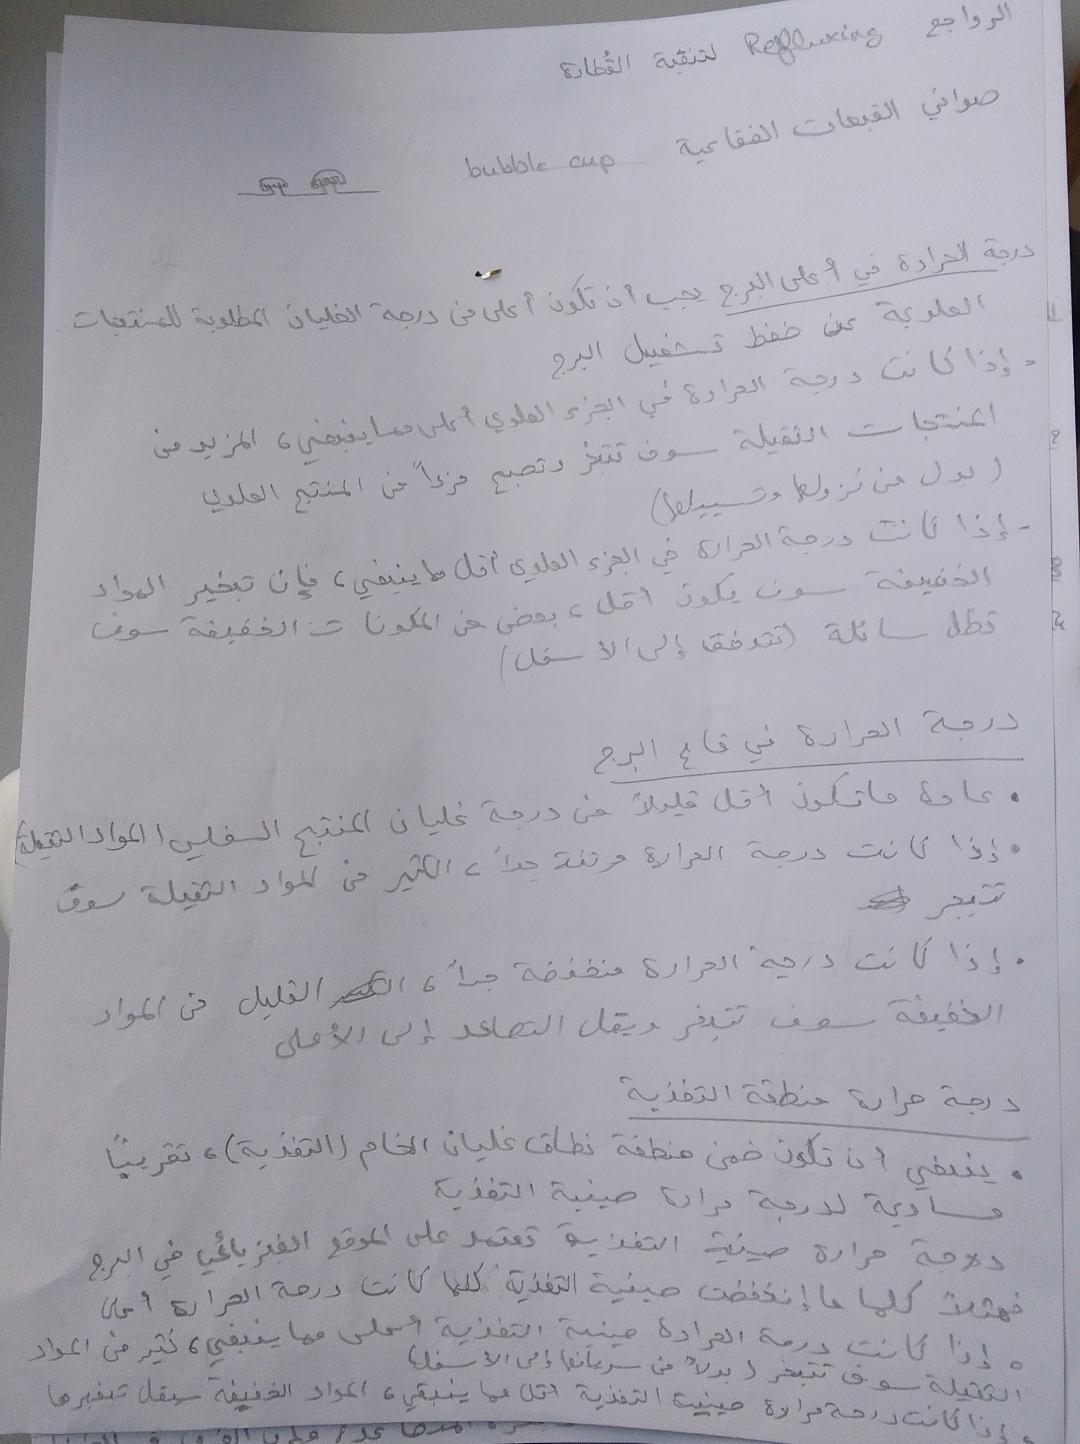 الرواجع Refluxing لتنقية القُطارة
صواني القبعات الفقاعية bubble cup
درجة الحرارة في أعلى البرج يجب أن تكون أعلى من درجة الغليان المطلوبة للمنتجات
العلوية عن ضغط تشغيل البرج
- إذا كانت درجة الحرارة في الجزء العلوي أعلى مما ينبغي، المزيد من
المنتجات الثقيلة سوف تتبخر وتصبح جزءاً من المنتج العلوي
(بدل من نزولها وتسييلها)
- إذا كانت درجة الحرارة في الجزء العلوي أقل مما ينبغي، فإن تبخير المواد
الخفيفة سوف يكون أقل، بعض من المكونات الخفيفة سوف
تظل سائلة (تتدفق إلى الأسفل)
درجة الحرارة في قاع البرج
• عادة ماتكون أقل قليلاً من درجة غليان المنتج السفلي (المواد الثقيلة)
• إذا كانت درجة الحرارة مرتفعة جداً، الكثير من المواد الثقيلة سوف
تتبخر
• إذا كانت درجة الحرارة منخفضة جداً، القليل من المواد
الخفيفة سوف تتبخر ويقل التصاعد إلى الأعلى
درجة حرارة منطقة التغذية
• ينبغي أن تكون ضمن منطقة نطاق غليان الخام (التغذية)، تقريباً
مساوية لدرجة حرارة صينية التغذية
درجة حرارة صينية التغذية تعتمد على الموقع الفيزيائي في البرج
فمثلاً كلما ما إنخفضت صينية التغذية كلما كانت درجة الحرارة أعلى
• إذا كانت درجة الحرارة صينية التغذية أعلى مما ينبغي، كثير من المواد
الثقيلة سوف تتبخر (بدلاً من سريانها إلى الأسفل)
• إذا كانت درجة حرارة صينية التغذية أقل مما ينبغي، المواد الخفيفة سيقل تبخيرها